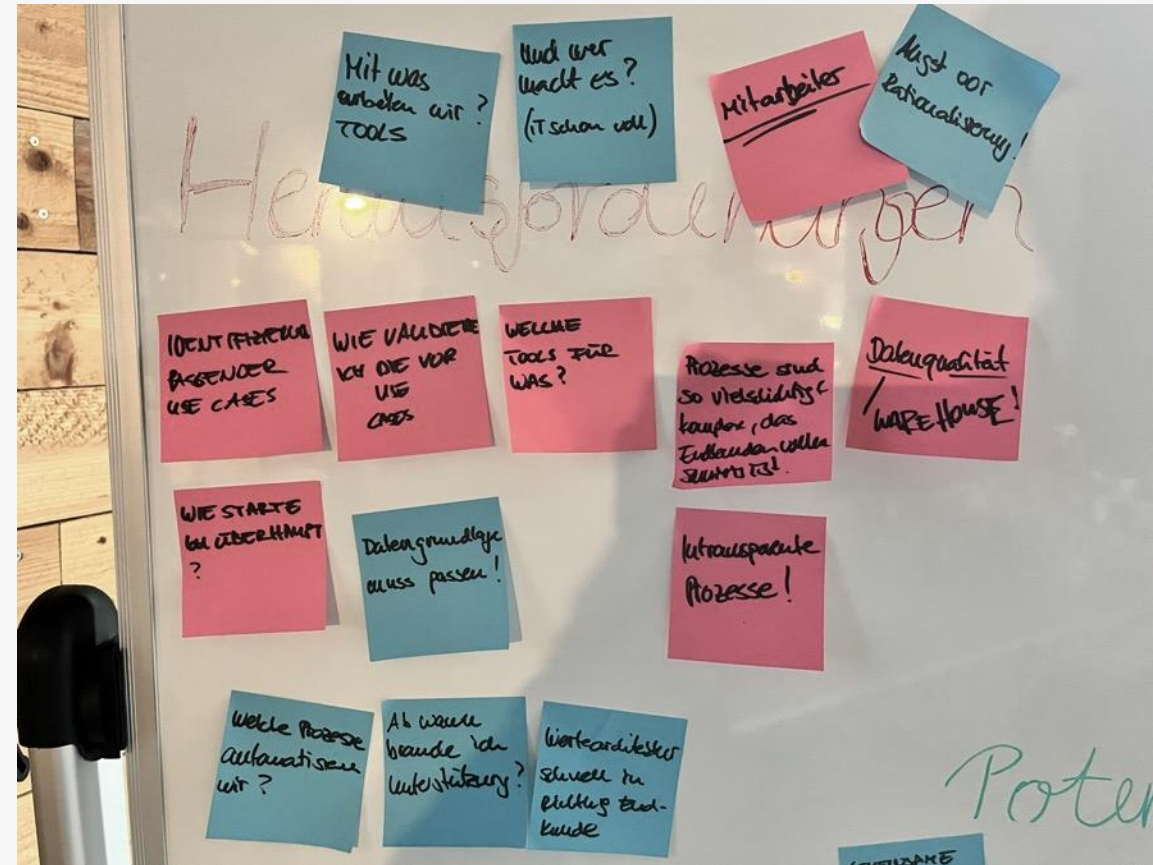 Mit was
arbeiten wir?
TOOLS
Und wer
macht es?
(iT schon voll)
Mitarbeiter
Angst vor
Rationalisierung!
Herausforderungen
IDENTIFIZIERUNG
PASSENDER
USE CASES
WIE VALIDIERE
ICH DIE VOR
USE
CASES
WELCHE
TOOLS FÜR
WAS?
Prozesse sind
so vielschichtig &
komplex, das
schwer ist!
Datenqualität
/ WAREHOUSE!
WIE STARTE
ICH ÜBERHAUPT
?
Datengrundlage
muss passen!
Intransparente
Prozesse!
Welche Prozesse
automatisieren
wir?
Ab wann
brauche ich
Unterstützung?
schnell in
Richtung End-
kunde
Poten